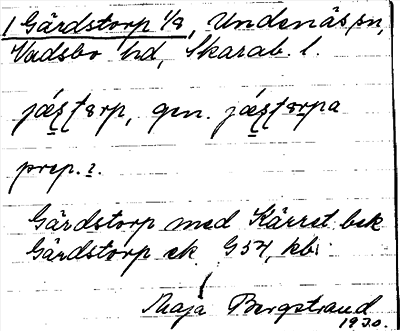 1 Gärdstorp 1/8, Undenäs sn,
Vadsbo hd, Skarab. l.
prep. i.
Gärdstorp med Kärret bek
Gärdstorp ek G54, kbi
Maja Bergstrand
1930.